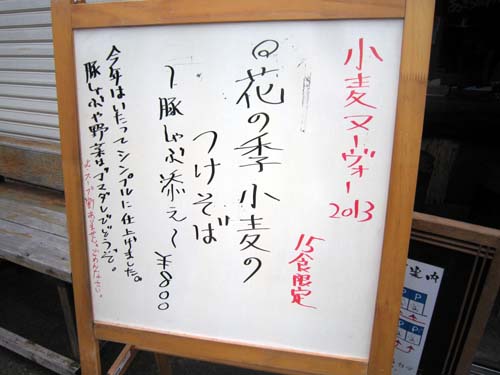 小麦ヌーヴォー
2013
15食限定
◎花の季小麦の
つけそば
〜豚しゃぶ添え〜 ¥800
今年はいたってシンプルに仕上げました。
豚しゃぶや野菜はゴマダレでどうぞ。
※スープ割ありません。ごめんなさい。
案内
P
P